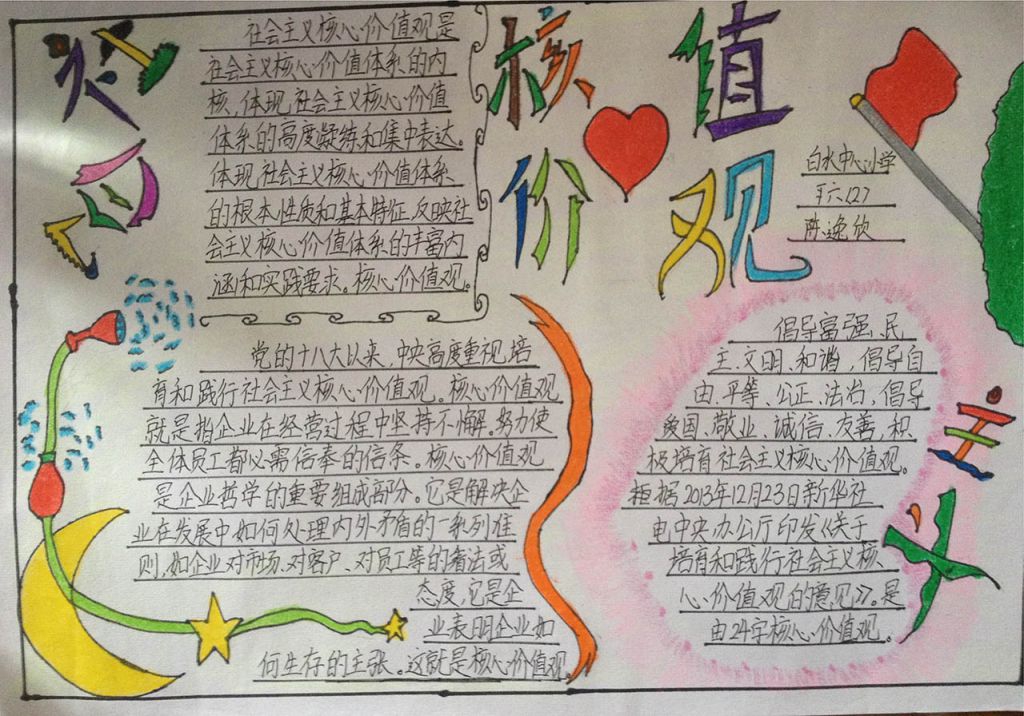 社会
核心价值观
主义
白水中心小学
六(2)
陈逸欣
社会主义核心价值观是
社会主义核心价值体系的内
核,体现社会主义核心价值
体系的高度凝练和集中表达。
体现社会主义核心价值体系
的根本性质和基本特征,反映社
会主义核心价值体系的丰富内
涵和实践要求。核心价值观。
党的十八大以来,中央高度重视培
育和践行社会主义核心价值观。核心价值观
就是指企业在经营过程中坚持不懈。努力使
全体员工都必需信奉的信条。核心价值观
是企业哲学的重要组成部分。它是解决企
业在发展中如何处理内外矛盾的一系列准
则,如企业对市场、对客户、对员工等的看法或
态度,它是企
业表明企业如
何生存的主张。这就是核心价值观
倡导富强、民
主、文明、和谐,倡导自
由、平等、公正、法治,倡导
爱国、敬业、诚信、友善,积
极培育社会主义核心价值观。
柜据2013年12月23日新华社
电中央办公厅印发《关于
培育和践行社会主义核
心价值观的意见》。是
由24字核心价值观。